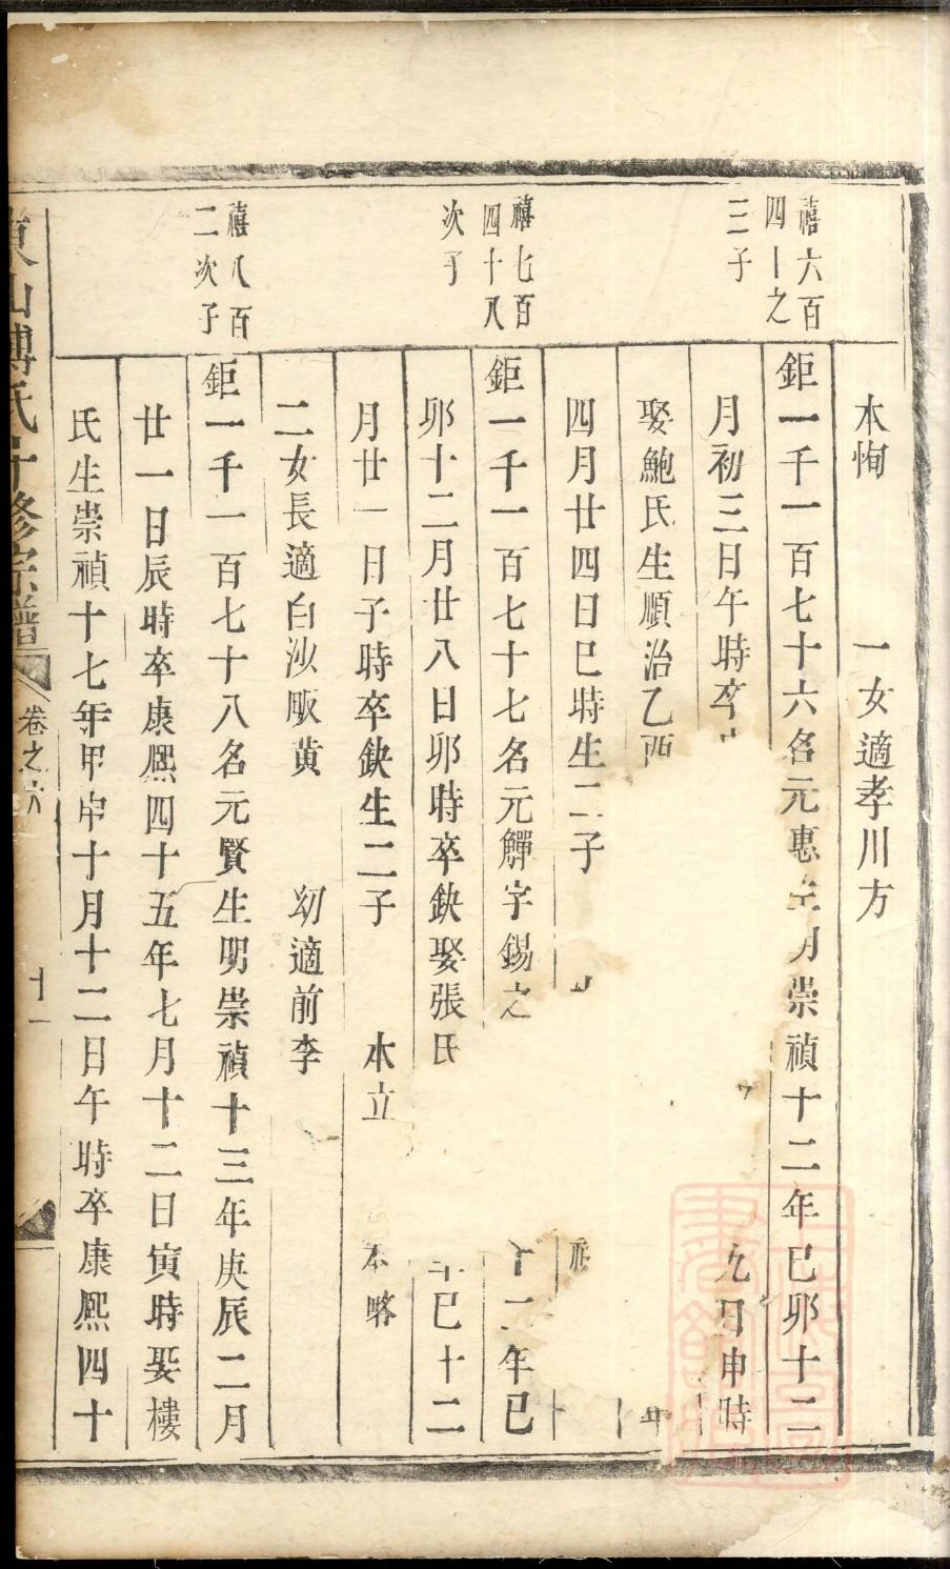 本恂　一女適孝川方
禧六百
四十之
三子
鉅一千一百七十六名元惠生明崇禎十二年己卯十二
月初三日午時卒
九日申時
娶鮑氏生順治乙酉
四月廿四日巳時生二子
禧七百
四十八
次子
鉅一千一百七十七名元觶字錫之
十二年己
卯十二月廿八日卯時卒缺娶張氏
巳十二
月廿一日子時卒缺生二子　本立　本略
二女長適白沙畈黄　幼適前李
禧八百
二次子
鉅一千一百七十八名元賢生明崇禎十三年庚辰二月
廿一日辰時卒康熙四十五年七月十二日寅時娶樓
氏生崇禎十七年甲申十月十二日午時卒康熙四十
東山傅氏十修宗譜　卷之六　十一